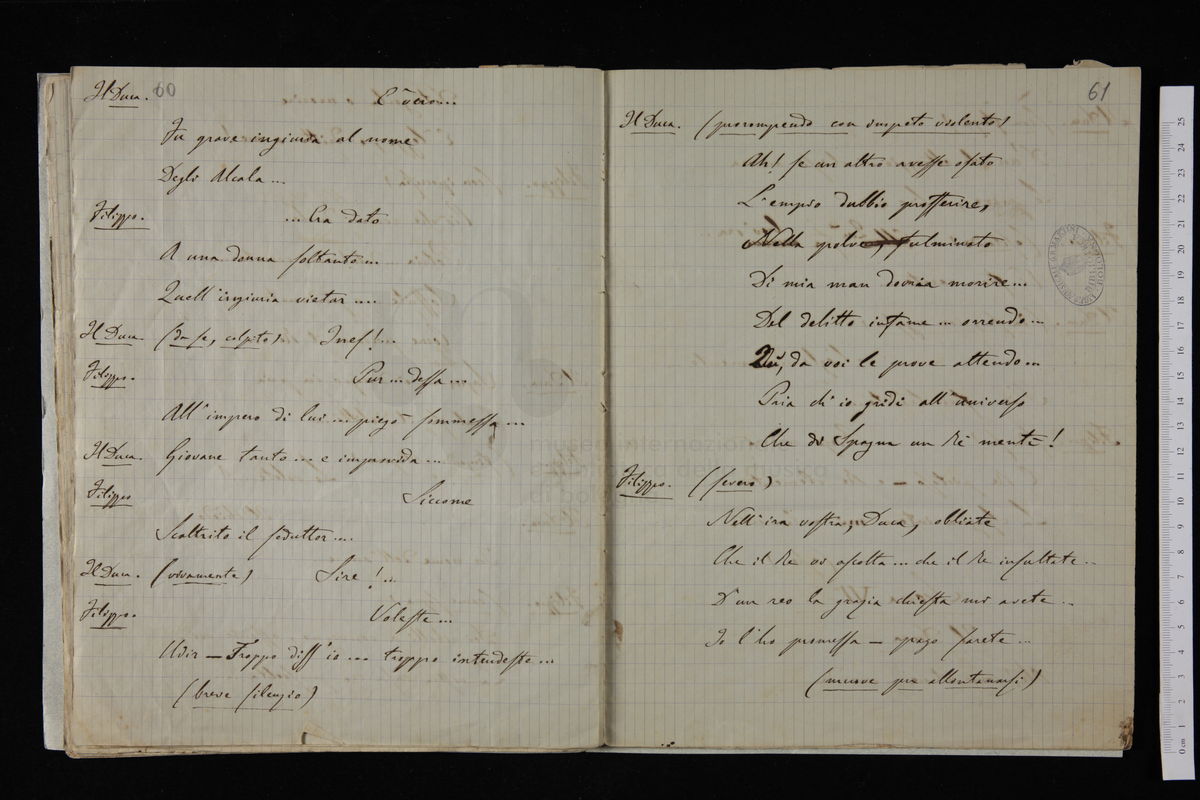 60
Il Duca. È vero...
Fu grave ingiuria al nome
Degli Alcala...
Filippo. ... Era dato
A una donna soltanto...
Quell'ingiuria vietar ....
Il Duca. (da se, colpito) Ines!...
Filippo. Pur... dessa...
All'impero di lui... piegò sommessa ...
Il Duca. Giovane tanto... e impavida...
Filippo Siccome
Scaltrito il seduttor...
Il Duca. (vivamente) Sire!...
Filippo. Voleste...
Udir — Troppo diss'io... troppo intendeste...
(breve silenzio)
61
Il Duca. (prorompendo con impeto violento)
Ah! se un altro avesse osato
L'empio dubbio profferire,
Nella polve, fulminato
Di mia man dovria morire...
Del delitto infame... orrendo...
da voi le prove attendo...
Pria ch'io gridi all'universo
Che di Spagna un Rè mentì!
Filippo. (severo)
Nell'ira vostra, Duca, obliate
Che il Re vi ascolta... che il Re insultate..
D'un reo la grazia chiesta mi avete...
Io l'ho promessa — pago sarete...
(muove per allontanarsi)